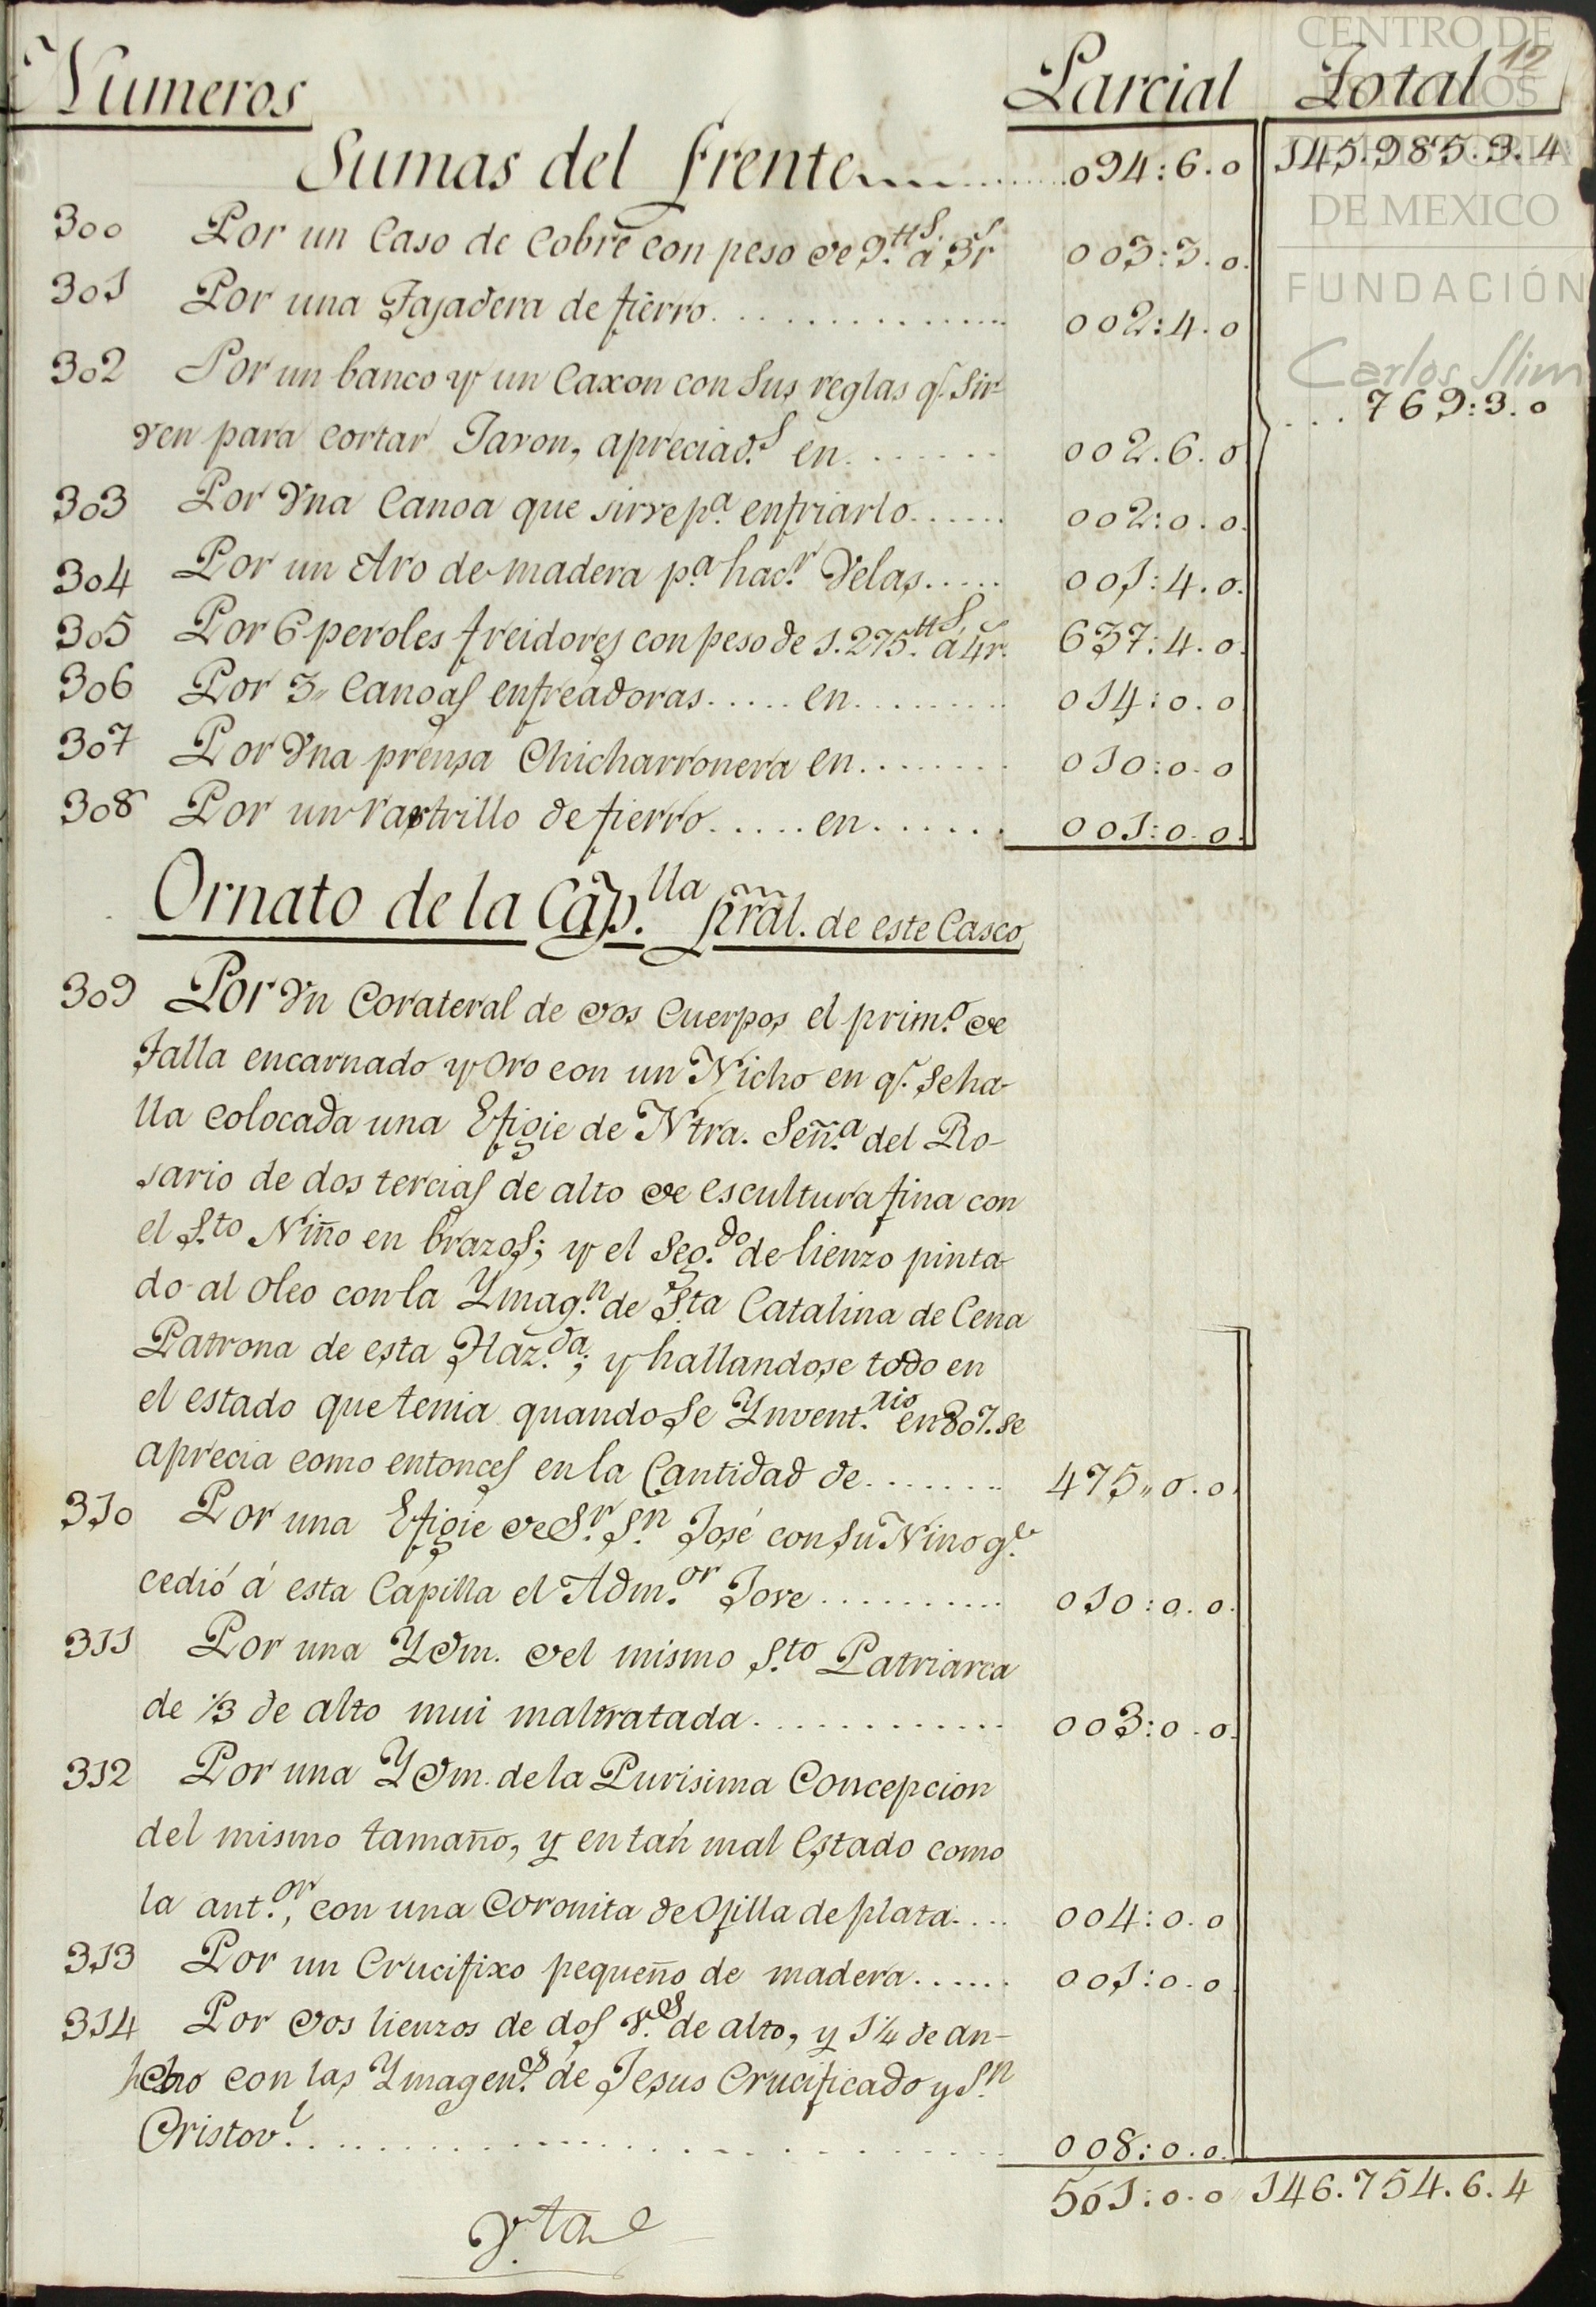 CENTRO DE
ESTUDIOS
DE HISTORIA
DE MEXICO
FUNDACIÓN
Carlos Slim
12
Numeros Parcial Total
Sumas del frente 094:6.0 145.985.3.4
300 Por un Caso de Cobre con peso de 9.ttS. a 3r 003:3.0.
301 Por una Tajadera de fierro. 002:4.0
302 Por un banco y un Caxon con Sus reglas q.e Sir-
ven para cortar Javon, apreciad.s en 002.6.0 769:3.0
303 Por Vna Canoa que sirve p.a enfriarlo 002:0.0.
304 Por un Aro de madera p.a hac.r Velas 001:4.0.
305 Por 6 peroles freidores con peso de 1.275.ttS. á 4r. 637:4.0.
306 Por 3,, Canoas enfreadoras en 014:0.0
307 Por Vna prensa Chicharronera en 010:0.0
308 Por un rastrillo de fierro en 001:0.0.
Ornato de la Cap.lla pr̃al. de este Casco
309 Por Vn Corateral de dos Cuerpos el prim.o de
Talla encarnado y Oro con un Nicho en q.e Seha-
lla colocada una Efigie de Ntra. Señ.a del Ro-
sario de dos tercias de alto de escultura fina con
el S.to Niño en brazos; y el Seg.do de lienzo pinta-
do al Oleo con la Ymag.n de S.ta Catalina de Cena
Patrona de esta Haz.da; y hallandose todo en
el estado que tenia quando Se Ynvent.rio en 807. se
aprecia como entonces en la Cantidad de 475,,0.0.
310 Por una Efigie de S.r S.n José con Su Nino q.e
cedió á esta Capilla el Adm.or Jove 010:0.0.
311 Por una Ydm. del mismo S.to Patriarca
de 1/3 de alto mui maltratada 003:0.0.
312 Por una Ydm. de la Purisima Concepcion
del mismo tamaño, y en tan mal Estado como
la ant.or, con una Coronita de Ojilla de plata 004:0.0
313 Por un Crucifixo pequeño de madera 001:0.0.
314 Por dos lienzos de dos v.s de alto, y 1 1/4 de an-
cho con las Ymagen.s de Jesus Crucificado y S.n
Cristov.l 008:0.0.
501:0.0 146.754.6.4
V.ta